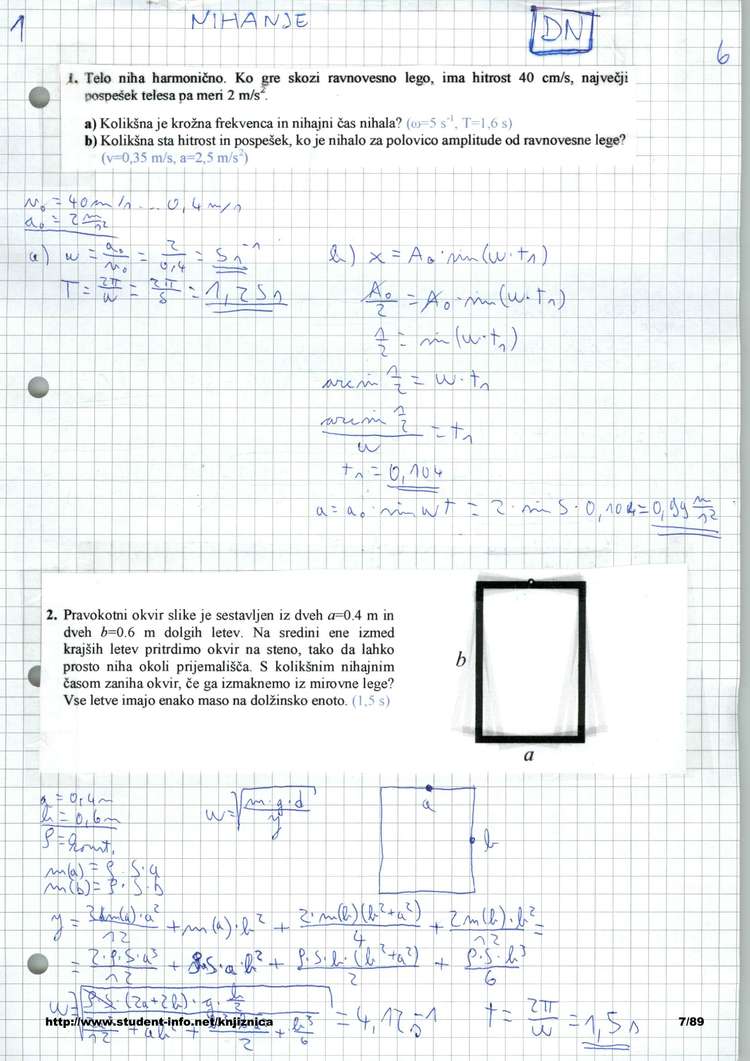 1
NIHANJE
DN
6
1. Telo niha harmonično. Ko gre skozi ravnovesno lego, ima hitrost 40 cm/s, največji
pospešek telesa pa meri 2 m/s².
a) Kolikšna je krožna frekvenca in nihajni čas nihala? (ω=5 s⁻¹, T=1,6 s)
b) Kolikšna sta hitrost in pospešek, ko je nihalo za polovico amplitude od ravnovesne lege?
(v=0,35 m/s, a=2,5 m/s²)
v₀ = 40 m/s ... 0,4 m/s
a₀ = 2 m/s²
a) ω = a₀/v₀ = 2/0,4 = 5 s⁻¹
T = 2π/ω = 2π/5 = 1,25 s
b) x = A₀ · sin(ω · t₁)
A₀/2 = A₀ · sin(ω · t₁)
1/2 = sin(ω · t₁)
arcsin 1/2 = ω · t₁
arcsin 1/2 / ω = t₁
t₁ = 0,104
a = a₀ · sin ωt = 2 · sin 5 · 0,104 = 0,99 m/s²
2. Pravokotni okvir slike je sestavljen iz dveh a=0.4 m in
dveh b=0.6 m dolgih letev. Na sredini ene izmed
krajših letev pritrdimo okvir na steno, tako da lahko
prosto niha okoli prijemališča. S kolikšnim nihajnim
časom zaniha okvir, če ga izmaknemo iz mirovne lege?
Vse letve imajo enako maso na dolžinsko enoto. (1,5 s)
b
a
a = 0,4 m
b = 0,6 m
ρ = konst.
m(a) = ρ · S · a
m(b) = ρ · S · b
ω = √(m · g · d / J)
a
b
J = 2 m(a) · a²/12 + m(a) · b² + 2 · m(b)(b² + a²)/4 + 2 m(b) · b²/12 =
= 2 · ρ · S · a³/12 + ρ · S · a · b² + ρ · S · b · (b² + a²)/2 + ρ · S · b³/6
= 4,12 s⁻¹
t = 2π/ω = 1,5 s
http://www.student-info.net/knjiznica
7/89